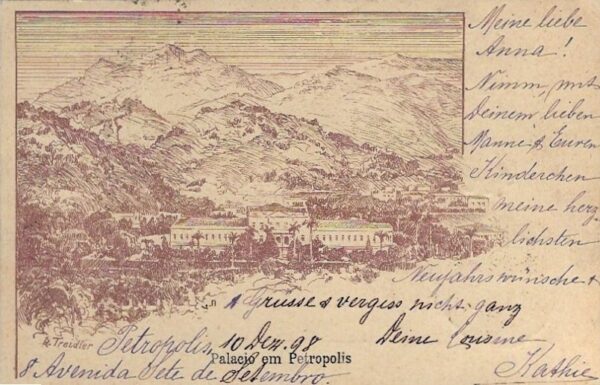 Meine liebe
Anna!
Nimm, mit
Deinem lieben
Manne & Euren
Kinderchen
meine herz
lichsten
Neujahrswünsche &
Grüsse & vergess nicht ganz
Deine Cousine
Kathie
H. Treidler
Petropolis, 10 Dez. 98
Palacio em Petropolis
8 Avenida Sete de Setembro.